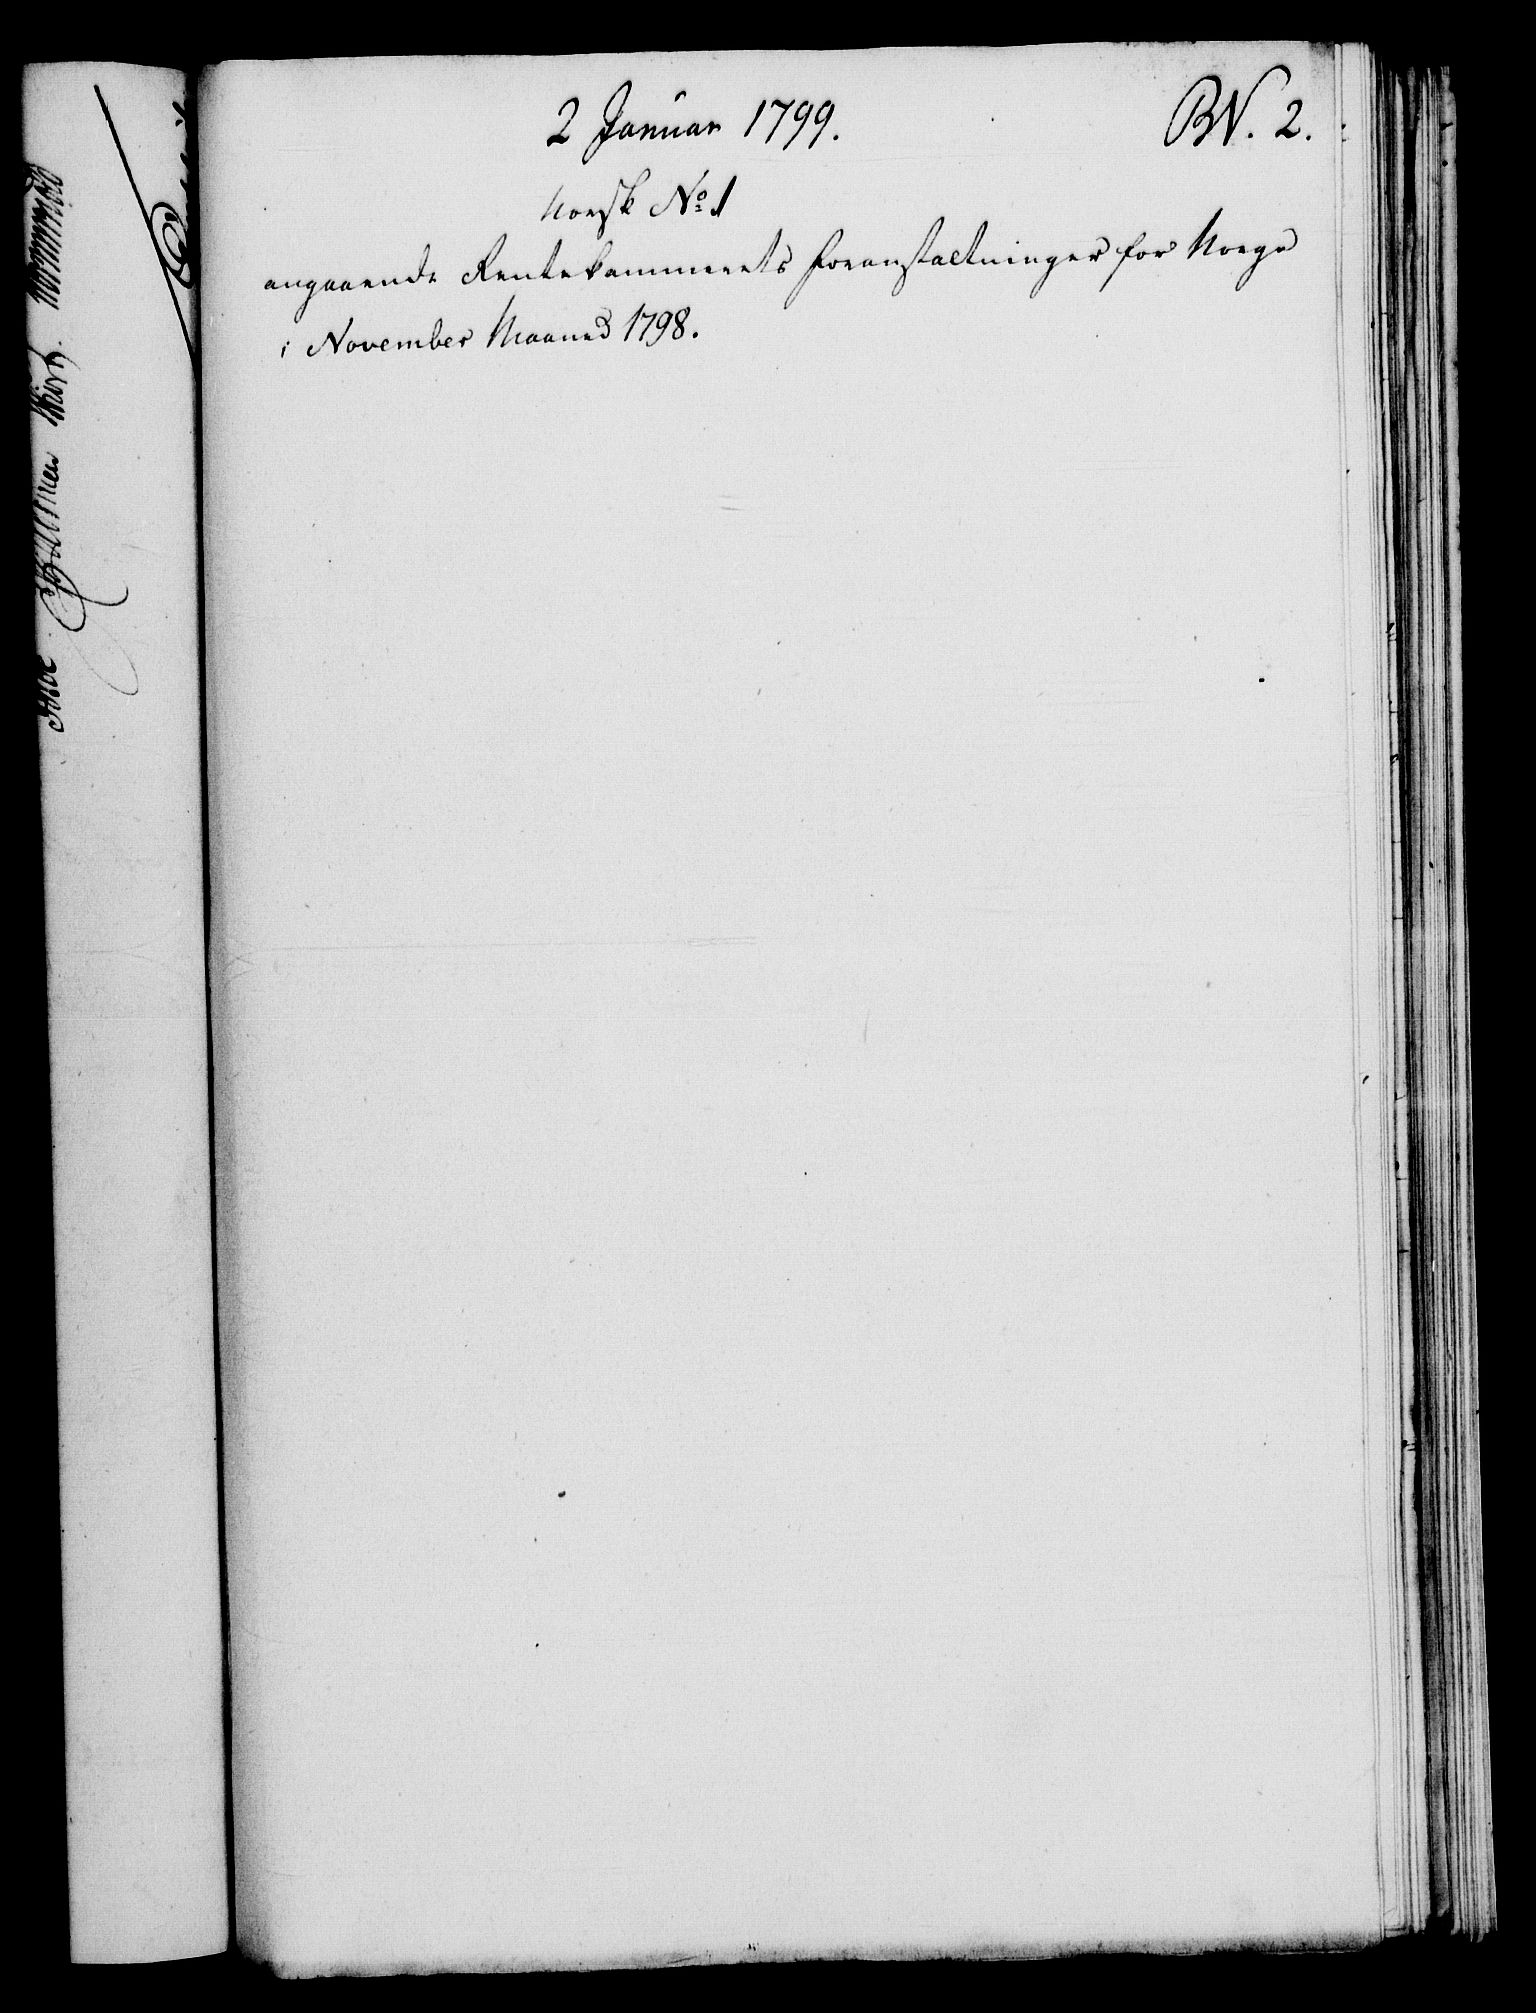 2 Januar 1799.
BN. 2.
Norsk No 1
angaaende Rentekammerets Foranstaltninger for Norge
i November Maaned 1798.